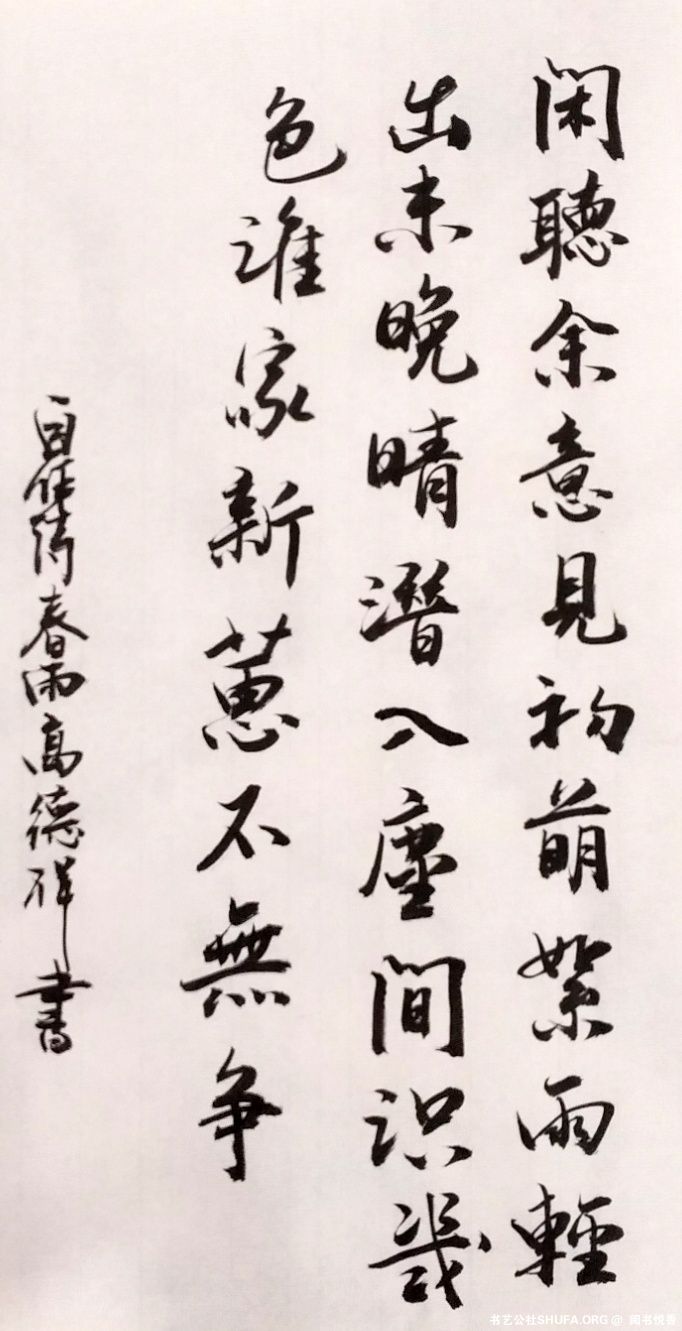 闲聽余意見初萌絮雨輕
出未晚晴潛入塵間识幾
色誰家新蔥不無争
自作诗春雨高德祥書
书艺公社SHUFA.ORG @ 闻书悦香